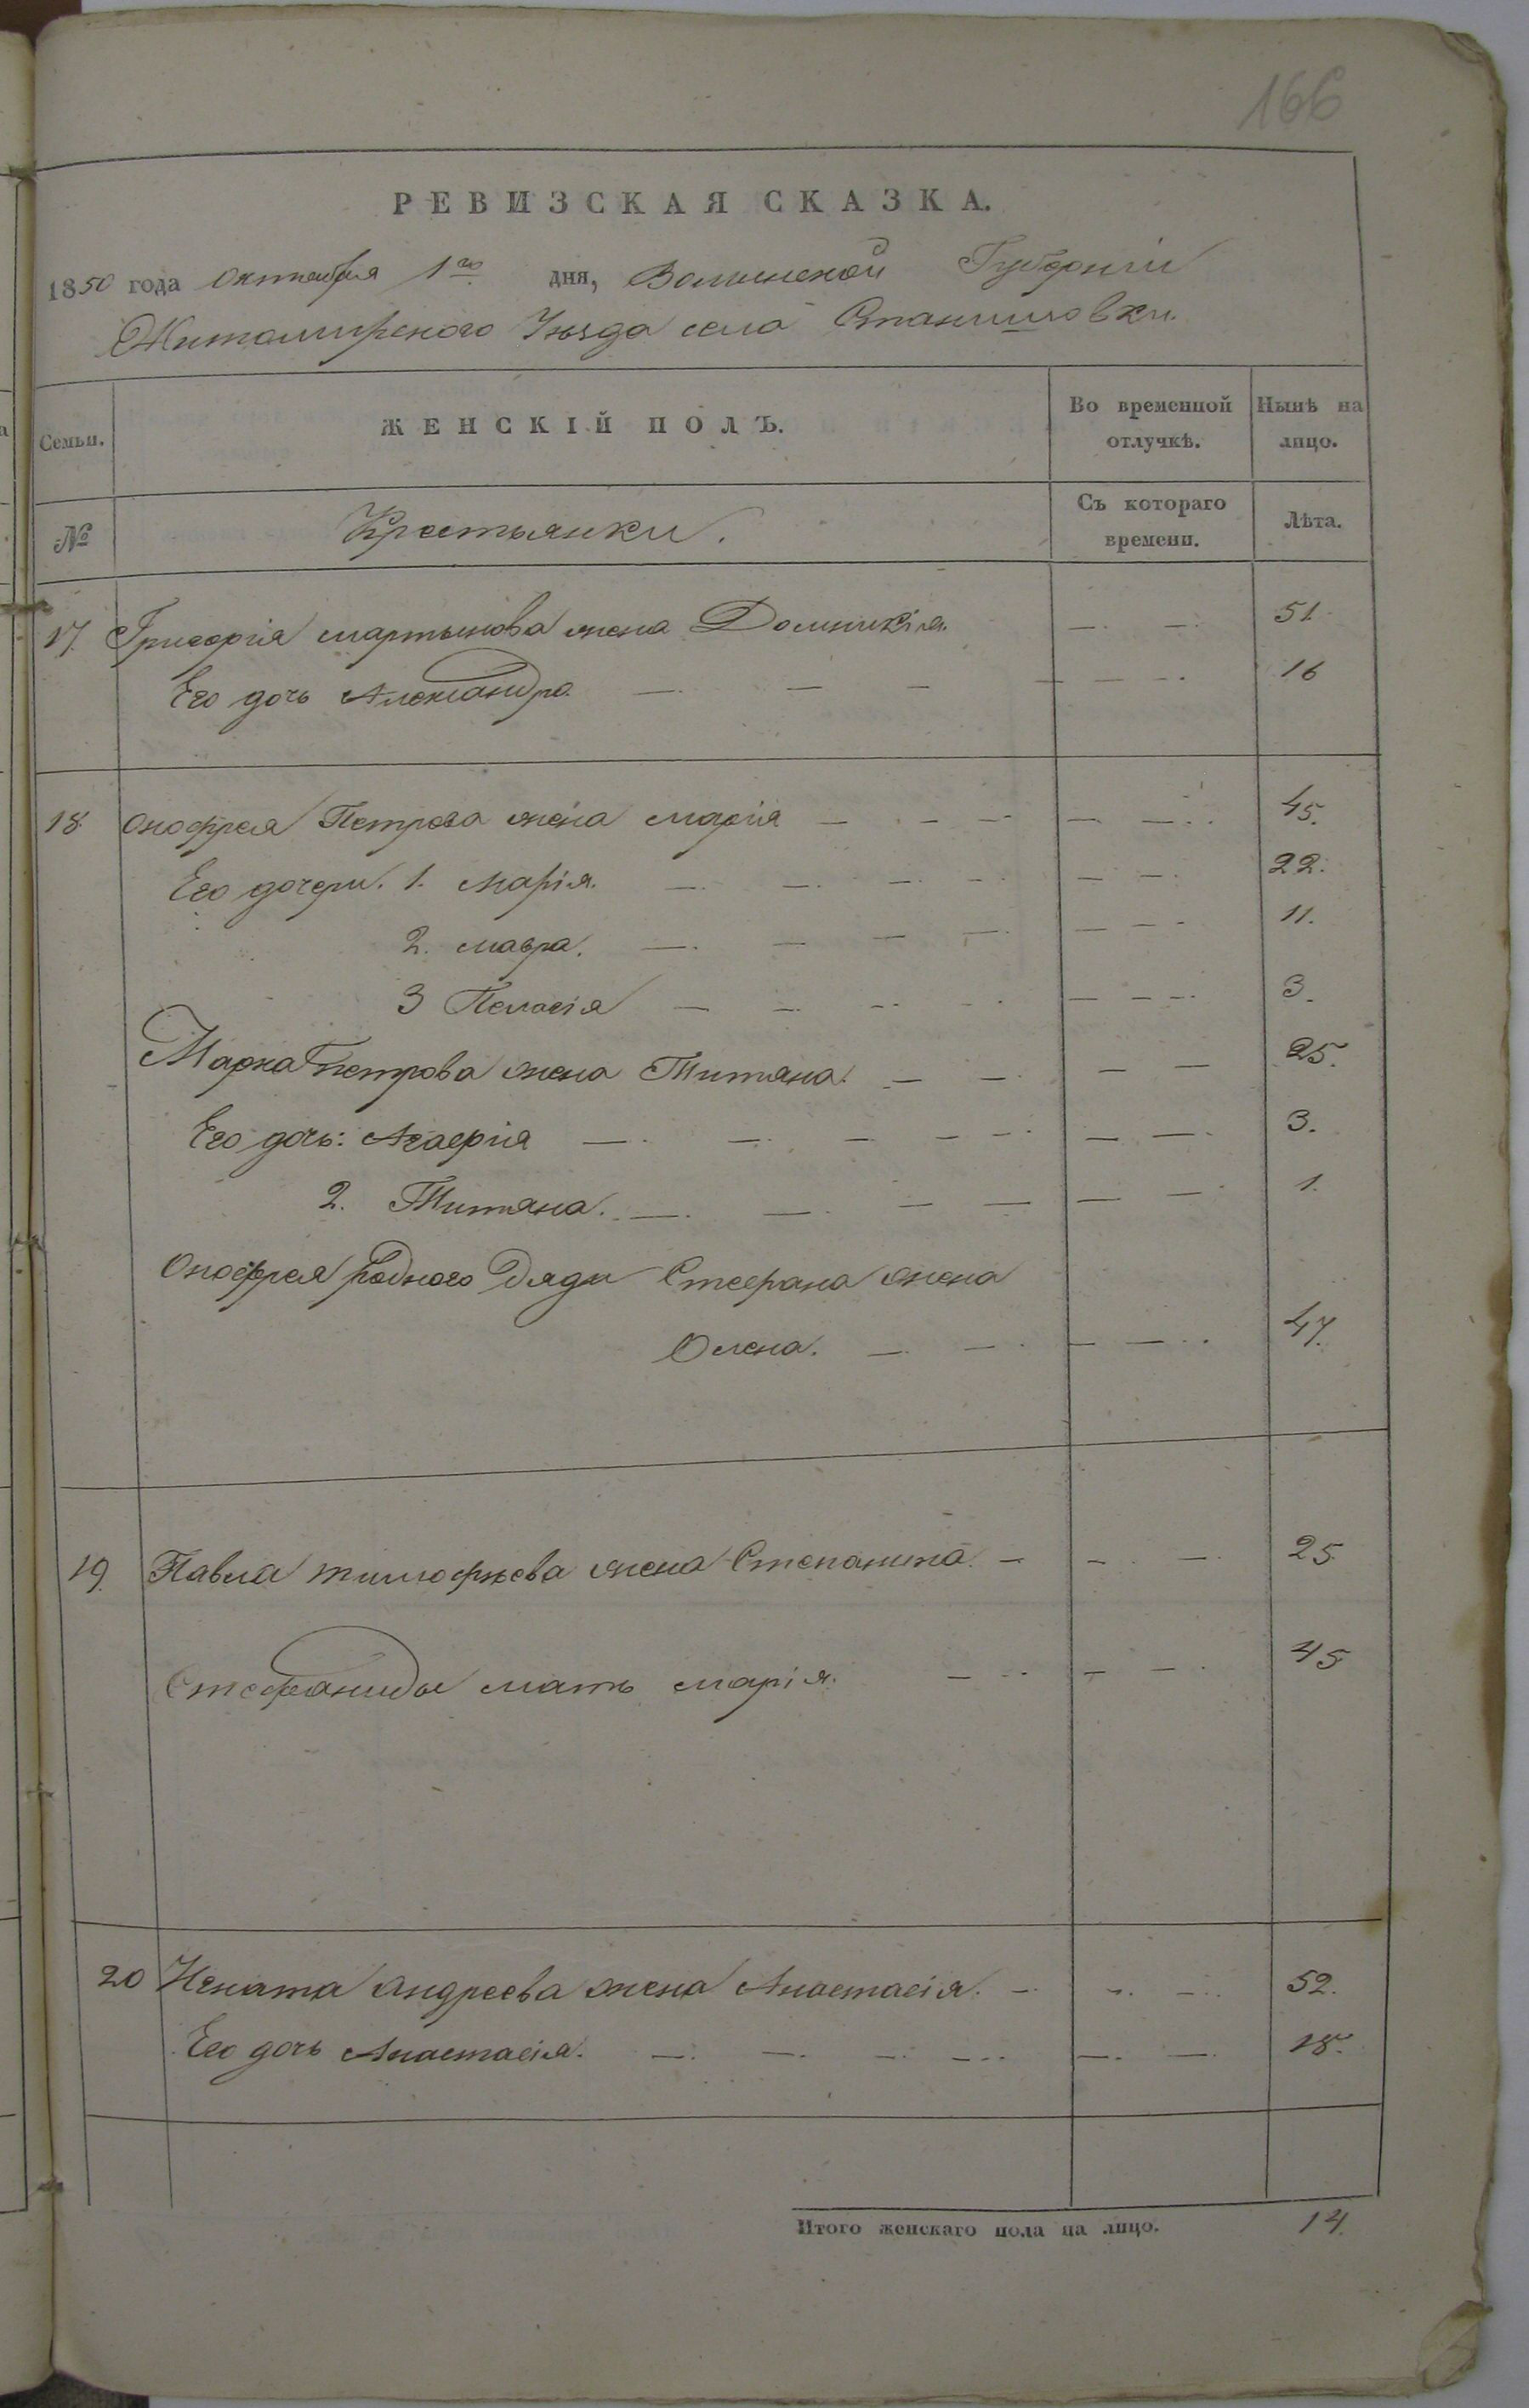 166
РЕВИЗСКАЯ СКАЗКА.
1850 года Октября 1го дня, Волынской Губерніи
Житомирского Уезда села Станишовки.
Семьи. ЖЕНСКІЙ ПОЛЪ. Во временной отлучкѣ. Нынѣ на лицо.
№ Крестьянки. Съ котораго времени. Лѣта.
17. Григорія мартынова жена Домникія. — — 51
Его дочь Александра — — — — — — 16
18 Онофрея Петрова жена марія — — — — — 45.
Его дочери. 1. Марія. — — — — — — 22.
2. мавра. — — — — — — — 11.
3 Пелагія — — — — — — — 3.
Марка Петрова жена Титяна. — — — — 25.
Его дочь: Агафія — — — — — — — 3.
2. Титяна. — — — — — — 1.
Онофрея родного Дяди Стефана жена
Олена. — — — — 47.
19. Павла тимофѣева жена Степанида — — — 25
Стефаниды мать марія. — — — — 45
20 Игната Андреева жена Анастасія. — — — 52.
Его дочь Анастасія. — — — — — — 18.
Итого женскаго пола на лицо. 14.